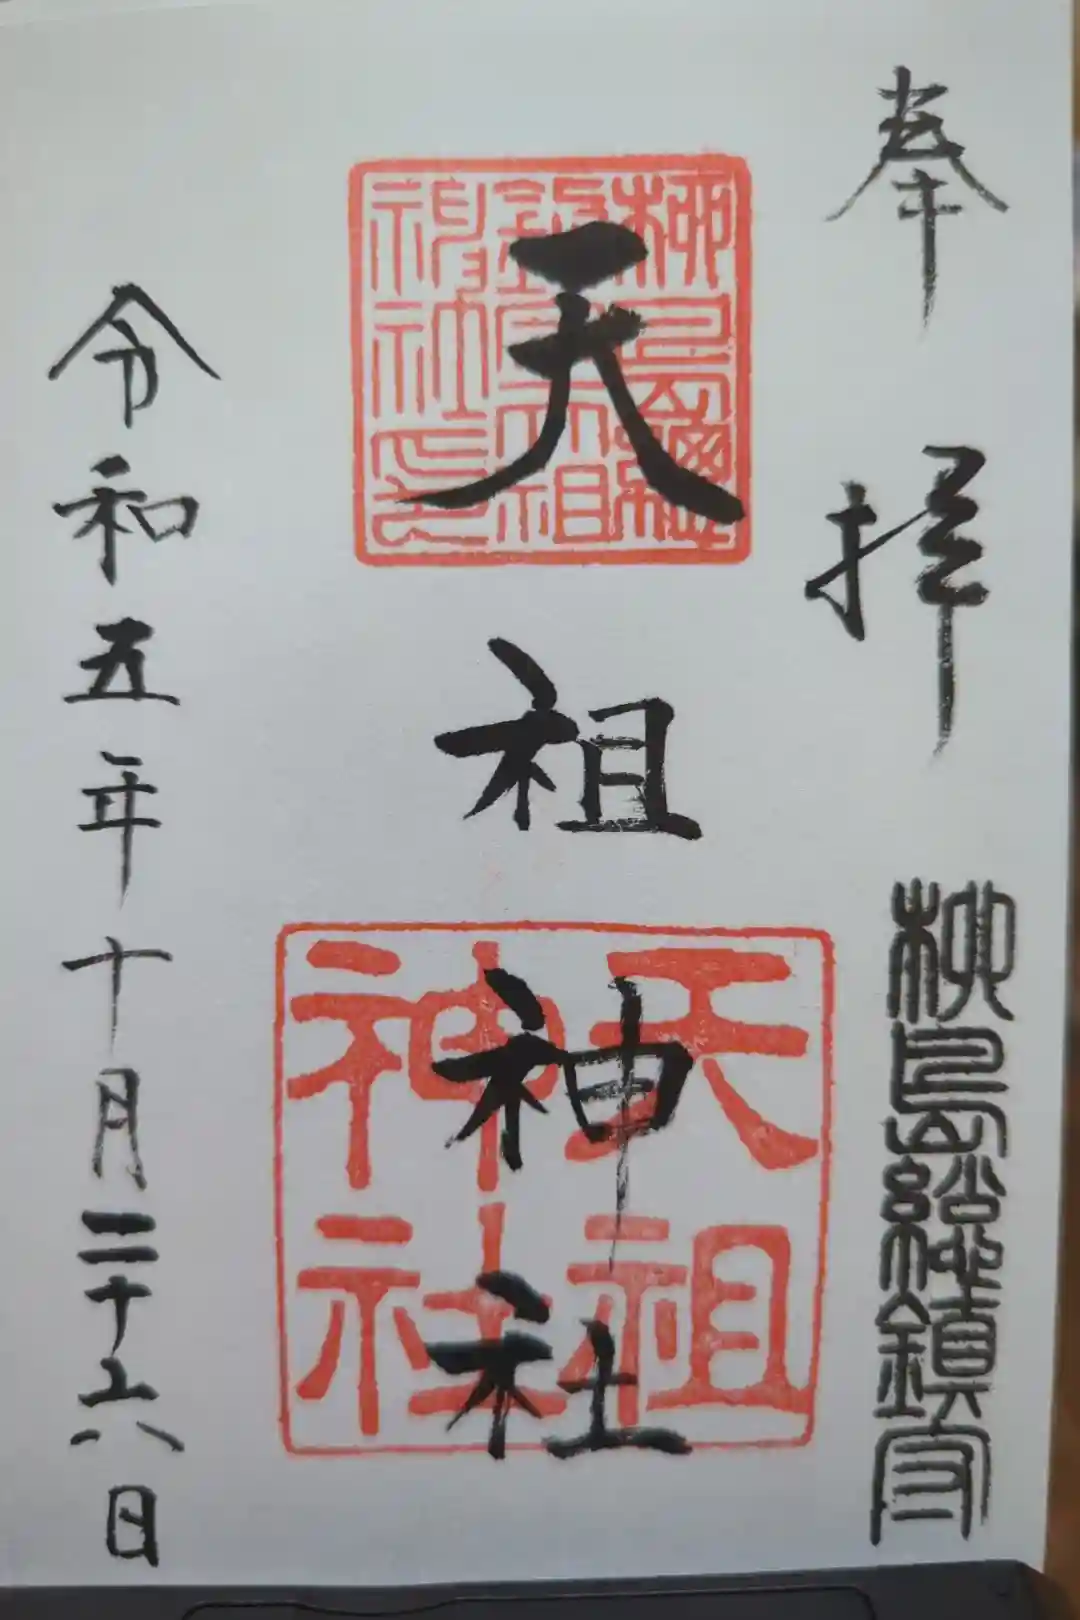 奉拝
柳島総鎮守
天祖神社
柳島総鎮守天祖神社印
天祖神社
令和五年十月二十六日